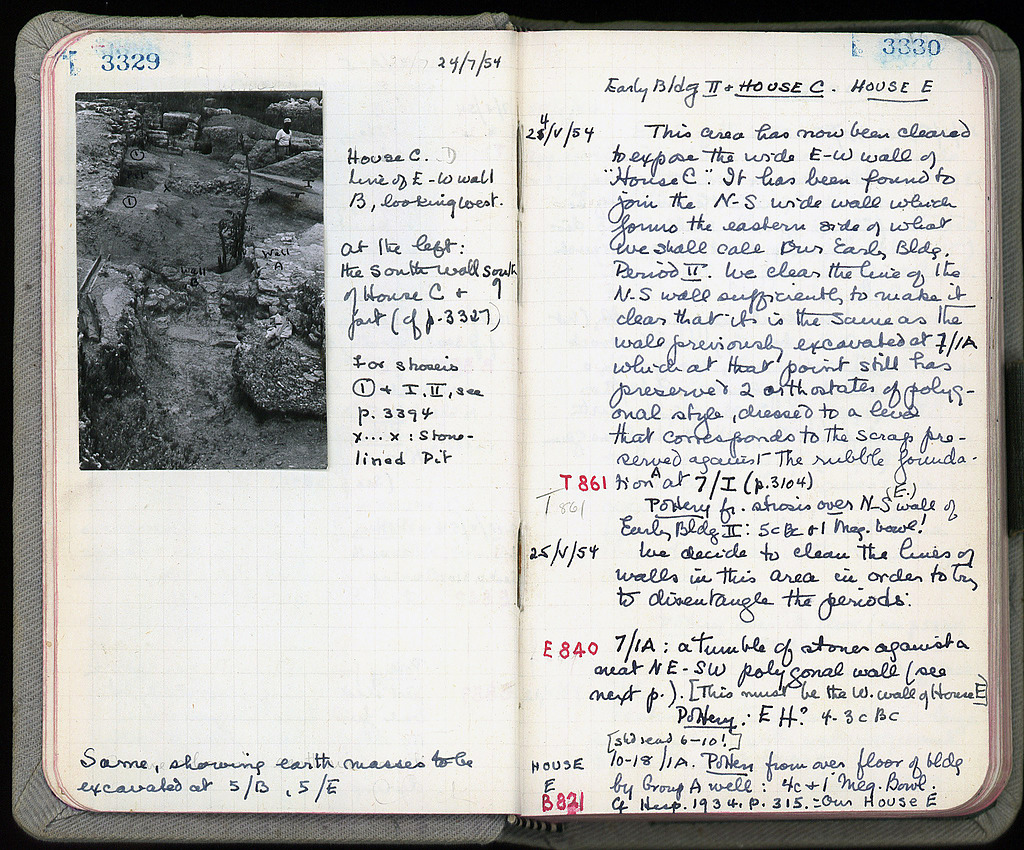 3329
24/7/54
House C. D
Line of E-W wall
B, looking west.
At the left:
the South wall South
of House C +
(cf p. 3327)
For strosis
① + I, II, see
p. 3394
x...x : Stone-
lined Pit
①
①
I
Wall
A
Wall
B
Same, showing earth masses to be
excavated at 5/B, 5/E
3330
Early Bldg II + HOUSE C. HOUSE E
24/V/54
This area has now been cleared
to expose the wide E-W wall of
"House C". It has been found to
join the N-S wide wall which
forms the eastern side of what
we shall call Our Early Bldg.
Period II. We clear the line of the
N-S wall sufficiently to make it
clear that it is the same as the
wall previously excavated at 7/1A
which at that point still has
preserved 2 orthostates of polyg-
onal style, dressed to a level
that corresponds to the scrap pre-
served against the rubble founda-
T 861 tion A at 7/I (p. 3104)
T 861
Pottery fr. strosis over N-S (E.) wall of
Early Bldg II: 5c BC + 1 Meg. bowl!
25/V/54
We decide to clean the lines of
walls in this area in order to try
to disentangle the periods.
E 840 7/1A : a tumble of stones against a
neat NE-SW polygonal wall (see
next p.). [This must be the W. wall of House E]
Pottery: EH? 4-3c BC
[shd read 6-10!]
HOUSE
E
10-18/1A. Pottery from over floor of bldg
by Group A well: 4c + 1 Meg. Bowl.
B 821
Cf Hesp. 1934. p. 315. = Our House E